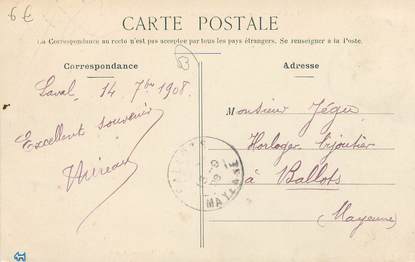 6€
CARTE POSTALE
La Correspondance au recto n'est pas acceptée par tous les pays étrangers. Se renseigner à la Poste.
Correspondance
Laval, 14 7bre 1908.
Excellent souvenir
Adresse
Monsieur Jégu
Horloger bijoutier
à Ballots
(Mayenne)
MAYENNE